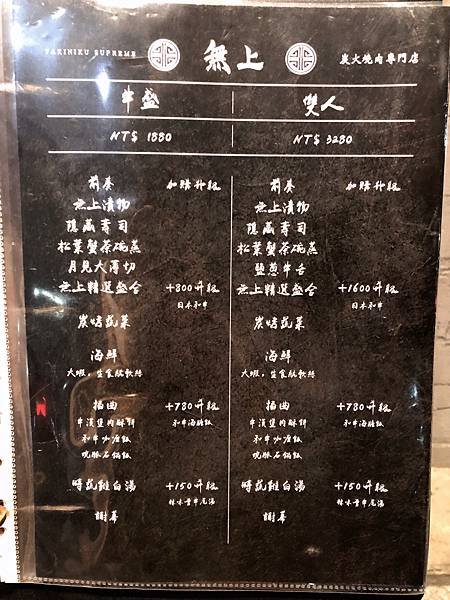 YAKINIKU SUPREME 無上 炭火燒肉專門店
牛盛 雙人
NT$ 1880 NT$ 3280
前奏 加購升級 前奏 加購升級
無上漬物 無上漬物
隱藏壽司 隱藏壽司
松葉蟹茶碗蒸 松葉蟹茶碗蒸
月見大薄切 鹽蔥牛舌
無上精選盛合 +800升級 無上精選盛合 +1600升級
日本和牛 日本和牛
炭烤蔬菜 炭烤蔬菜
海鮮 海鮮
大蝦，生食級軟絲 大蝦，生食級軟絲
插曲 +780升級 插曲 +780升級
牛漢堡肉酥餅 和牛海膽飯 牛漢堡肉酥餅 和牛海膽飯
和牛咖喱飯 和牛咖喱飯
晚豚石鍋飯 晚豚石鍋飯
時蔬雞白湯 +150升級 時蔬雞白湯 +150升級
辣味蕃牛尾湯
謝幕 謝幕